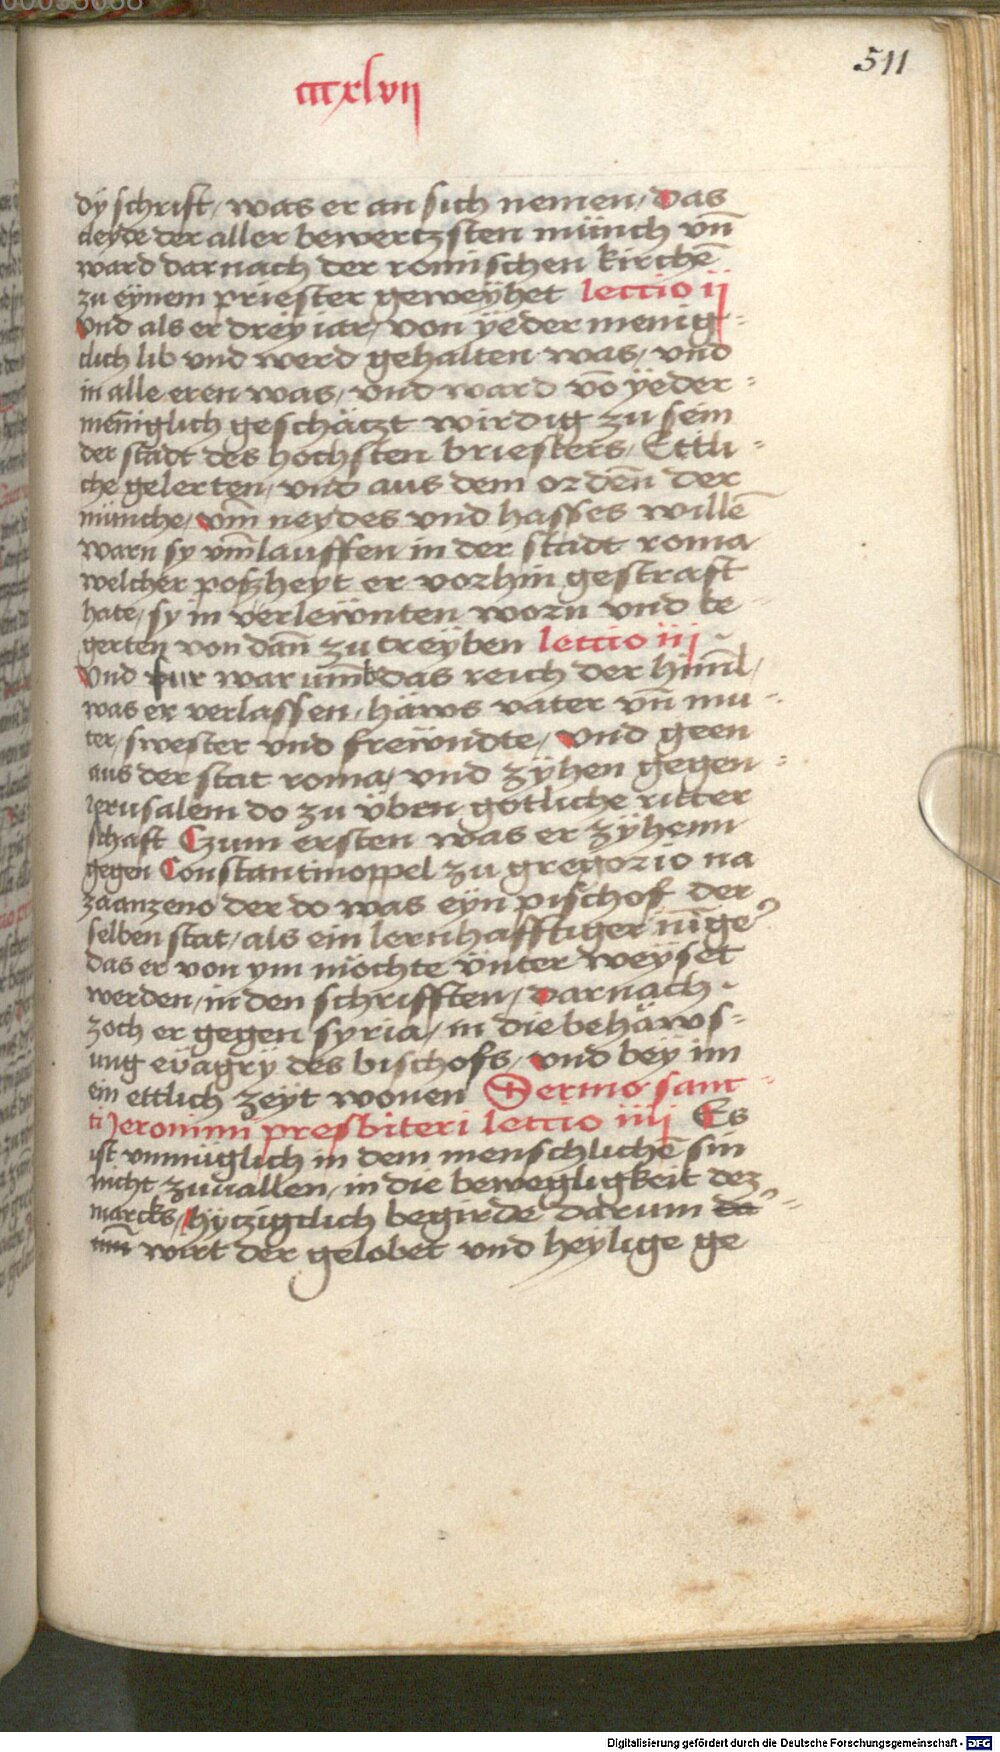 511
cccxlvii
dÿ schrift / was er an sich nemen / das
cleyde der aller bewertzsten münch vn̄
ward darnach der romischen kirchē
zu eÿnem priester geweÿhet lectio ii
vnd als er dreÿ iar / von ÿeder menig-
clich lib vnd werd gehalten was / vnd
in alle eren was / vnd ward vō ÿeder-
meniglich geschätzt wirdig zu sein
der stadt des hochsten briesters / Ettli-
che gelerten / vnd aus dem ordēn der
münche / vm̄ neydes vnd hasses willē
warn sy vm̄lauffen in der stadt roma
welcher poszheyt er vorhin gestraft
hate / sy in verleẅnten worn vnd be-
gerten von dan̄ zu treÿben lectio iii
vnd fur war umb das reich der himl /
was er verlassen / häws vater vn̄ mu-
ter / swester vnd freẅndte / vnd geen
aus der stat roma / vnd zÿhen gegen
ierusalem do zu übrn götliche ritter
schaft Czum ersten was er zÿhenn
gegen Constantinoppel zu gregorio na
zaanzeno der do was eÿn pischof der
selben stat / als ein lernhafftiger iūnger
das er von ym möchte ünter weÿset
werden / in den schrifften / darnach
zoch er gegen syria / in die behäws-
ung eüagrÿ des bischofs / vnd beÿ im
ein ettlich zeÿt wonen Sermo sanc-
ti Jeronimi presbiteri lectio iiii Es
ist vnmüglich in dem menschlichē sin
nicht zuuallen / in die bewegligkeit dez
marcks / hÿtzigclich begirde darum
wirt der gelobet vnd heÿlige ge
Digitalisierung gefördert durch die Deutsche Forschungsgemeinschaft - DFG